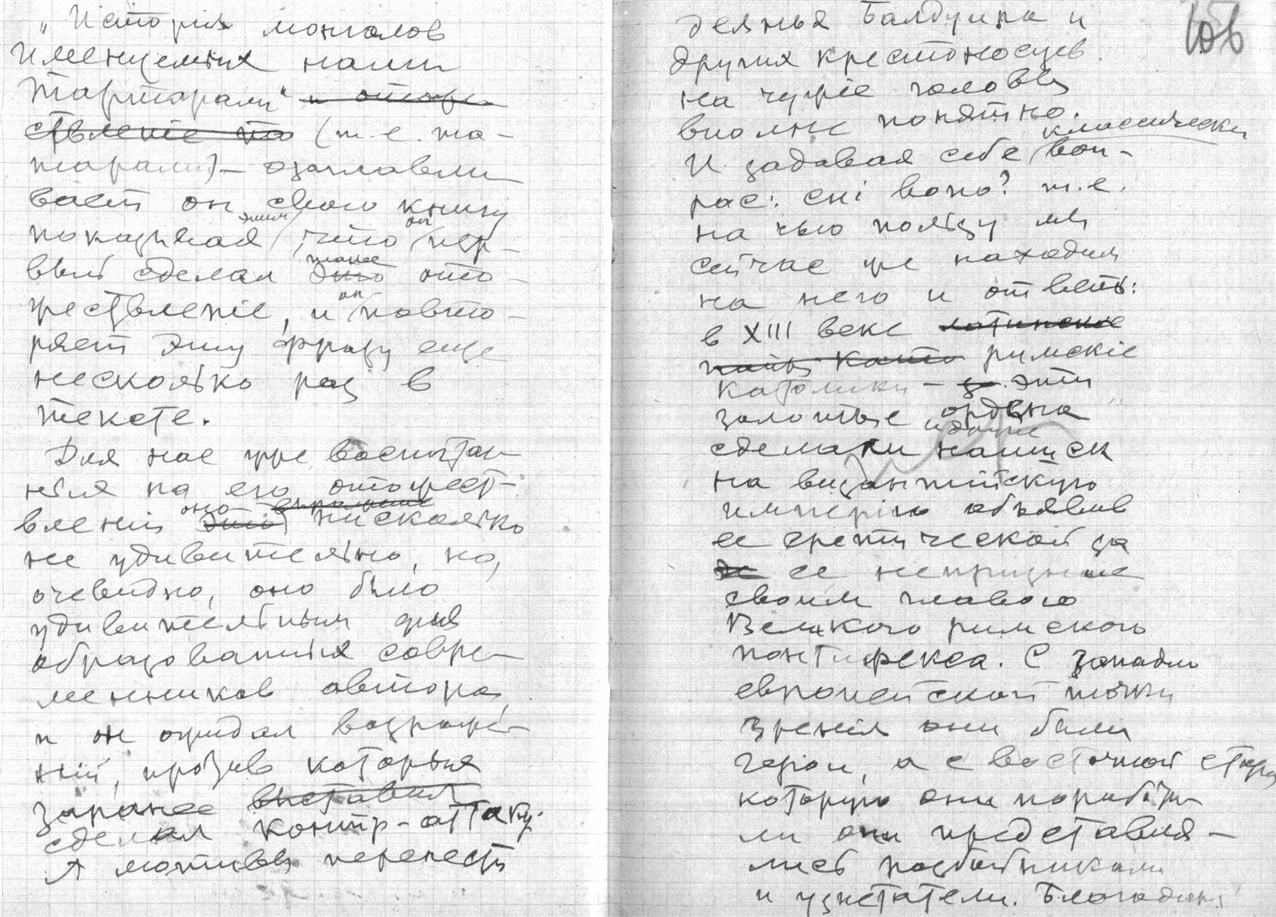 „Исторія монголов
Именуемых нами
Тартарами“ и отоже
ствленіе то (т.е. та-
тарами) – озаглавли
вает он свою книгу
показывая этим, что он пер-
вый сделал такое это ото-
жествленіе, и он повто-
ряет эту фразу еще
несколько раз в
тексте.
Для нас уже воспитан
ных на его отожест-
вленіи оно это нисколько
не удивительно, но,
очевидно, оно было
удивительным для
образованных совре-
менников автора,
и он ожидал возраже-
ній, против которых
заранее выставил
сделал контр-аттаку.
А мотивы перенести
деянья Балдуина и
других крестоносцев
на чужіе головы
вполне понятно.
И задавая себе классически воп-
рос: cui bono? т.е.
на чью пользу мы
сейчас же находим
на него и ответ:
в XIII веке латинскіе
римскіе
католики – эти
золотые ордена
сделали натиск
на византійскую
имперію объявив
ее еретической за
ее непризнание
своим главою
Великого римского
понтифекса. С западно
европейской точки
зренія они были
герои, а с восточной стороны
которую они поработи
ли они представля-
лись разбойниками
и угнетатели. Благодаря
106